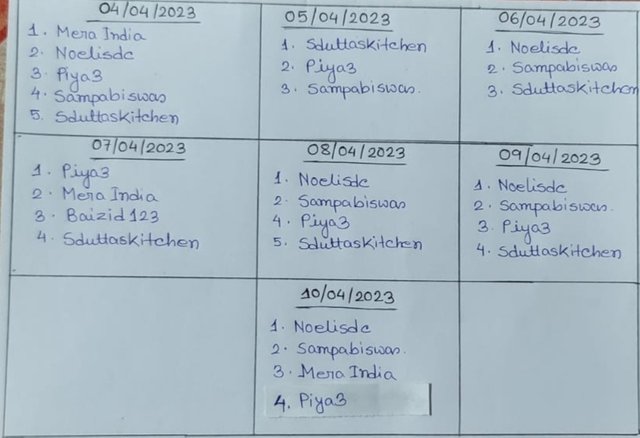 04/04/2023
1. Mera India
2. Noelisdc
3. Piya3
4. Sampabiswas
5. Sduttaskitchen
05/04/2023
1. Sduttaskitchen
2. Piya3
3. Sampabiswas.
06/04/2023
1. Noelisdc
2. Sampabiswas
3. Sduttaskitchen
07/04/2023
1. Piya3
2. Mera India
3. Baizid123
4. Sduttaskitchen
08/04/2023
1. Noelisdc
2. Sampabiswas
4. Piya3
5. Sduttaskitchen
09/04/2023
1. Noelisdc
2. Sampabiswas.
3. Piya3
4. Sduttaskitchen
10/04/2023
1. Noelisdc
2. Sampabiswas.
3. Mera India
4. Piya3